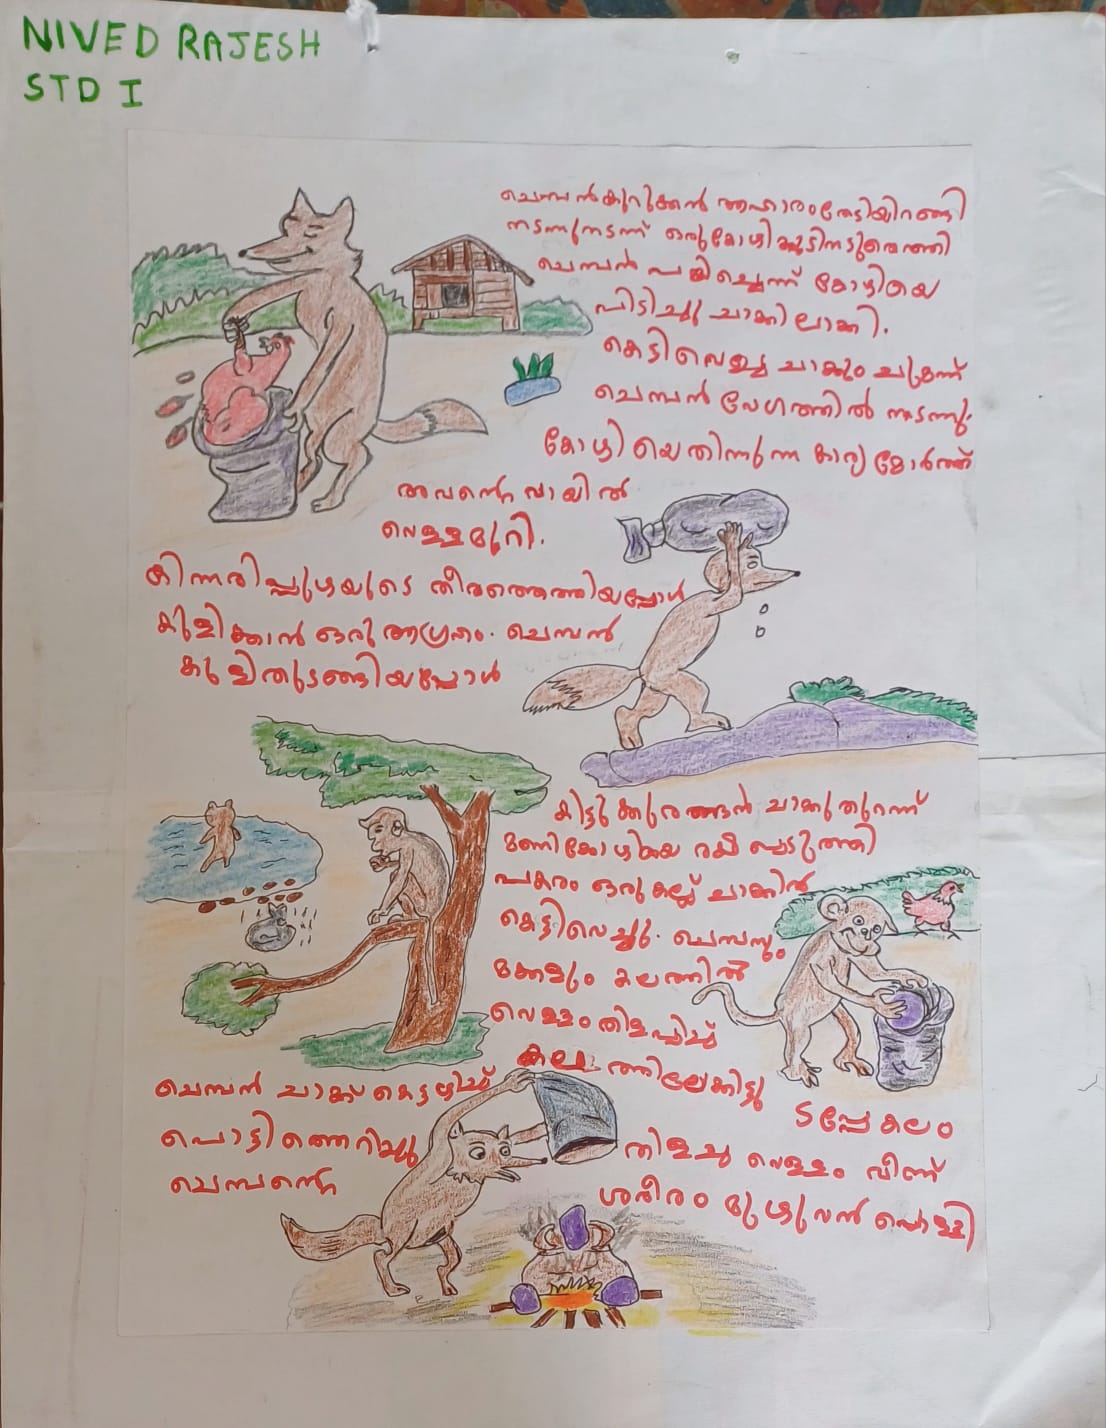 NIVED RAJESH
STD I
ചെമ്പൻകുറുക്കൻ ആഹാരംതേടിയിറങ്ങി
നടന്നുനടന്ന് ഒരുകോഴിക്കൂടിനടുത്തെത്തി
ചെമ്പൻ പമ്മിച്ചെന്ന് കോഴിയെ
പിടിച്ചു ചാക്കിലാക്കി.
കെട്ടിവെച്ച ചാക്കും ചുമന്ന്
ചെമ്പൻ വേഗത്തിൽ നടന്നു.
കോഴിയെതിന്നുന്ന കാര്യമോർത്ത്
അവന്റെ വായിൽ
വെള്ളമൂറി.
കിന്നരിപ്പുഴയുടെ തീരത്തെത്തിയപ്പോൾ
കുളിക്കാൻ ഒരു ആഗ്രഹം. ചെമ്പൻ
കുളിതുടങ്ങിയപ്പോൾ
കിട്ടുക്കുരങ്ങൻ ചാക്കുതുറന്ന്
മണികോഴിയെ രക്ഷപ്പെടുത്തി
പകരം ഒരുകല്ല് ചാക്കിൽ
കെട്ടിവെച്ചു. ചെമ്പനും
മക്കളും കലത്തിൽ
വെള്ളംതിളപ്പിച്ച്
ചെമ്പൻ ചാക്ക് കെട്ടഴിച്ച് കലത്തിലേക്കിട്ടു
ടപ്പേ കലം
പൊട്ടിത്തെറിച്ചു തിളച്ച വെള്ളം വീണ്
ചെമ്പന്റെ ശരീരം മുഴുവൻ പൊള്ളി